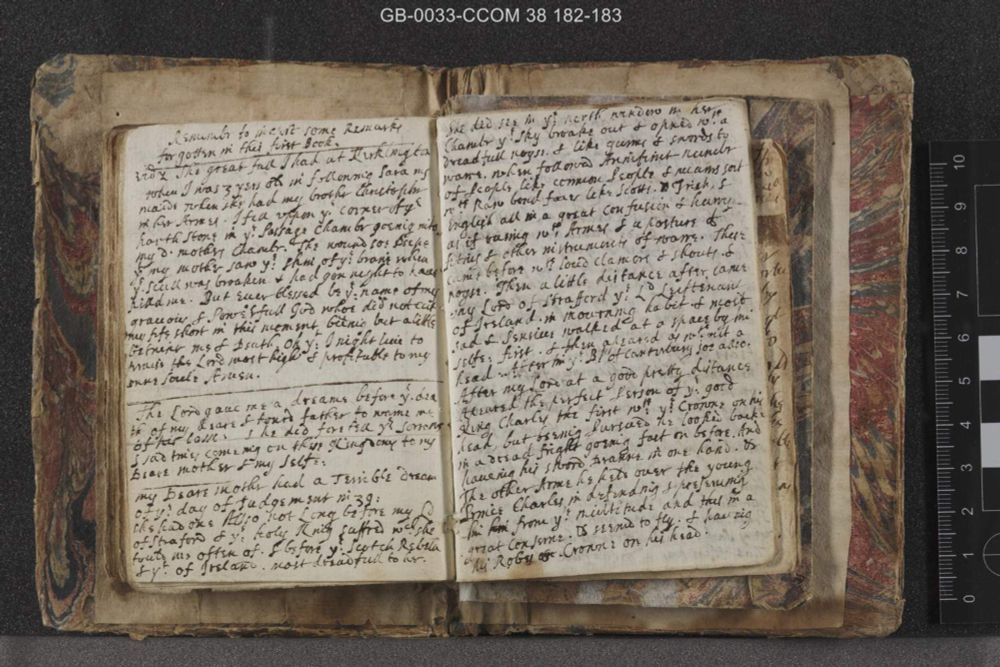 GB-0033-CCOM 38 182-183
Remmbr to incert some Remarks
for gotten in this first Book.
The great fall I had at Kirklington
when I was 3 yers old in following Sara my
maide when she had my brother Christopher
in her Armes. I fell upon ye corner of ye
harth stone in ye Passage Chamber goeing into
my d. mothers Chamber. The wound soe deepe
yt my mother saw ye skin of ye braine when
ye scull was broaken & had gon night to have
killed me. But ever blessed be ye name of my
gracious & Powerfull God whoe did not cutt
my life short in this moment, beeing but a little
betwixt me & Death. Oh yt I might live to
praise the Lord most high & profitable to my
owne soule Amen.
The Lord gave me a dreame before ye dea
th of my deare & honrd father to warne me
of his losse. & he did fore tell ye sorrows
& sad times comeing on this Kingdome to my
Deare mother & my selfe:
my Deare mother had a Terrible dream
of ye day of Judgement in 39:
she had one Also not Long before my Ld
of Straford & ye Holy King suffred wch she
tould me often of. & before ye Scotch Rebells
& yt of Ireland. most dreadfull to her.
She did see in ye north window in her
Chamber ye sky broake out & opned wth a
dreadfull noyse. & like gunns & swords to
warre. when followed Annifinit number
of People like common People & meane sort
wth Raw bond faces like Scotts. & Irish. &
English all in a great Confusion & hurry
as if runing wth Armes & a posture of
& other instruments of warre. These
came before wth loud clamors & shouts. &
noyse. Then a little distance after, came
my Lord of Strafford ye Ld Leiftenant
of Ireland. in mourning habit & most
sad & Pensive walked at a space by him
selfe. first. & then apeared as without a
head. After him ye Bp of Canterbury soe alsoe.
After my Lord at a good pretty distance
apeared the perfect Person of ye good
King Charles the first wth ye Crowne on his
head. but seeming Pursued he looked backe
in a dread fright goeing fast on before. And
haveing his sword drawne in one hand. &
The other Arme he held over the young
Prince Charles in defending & preserving
him from ye multitude and this in a
great Conserne. & seemed to fly. & having
his Robes & Crowne on his head.